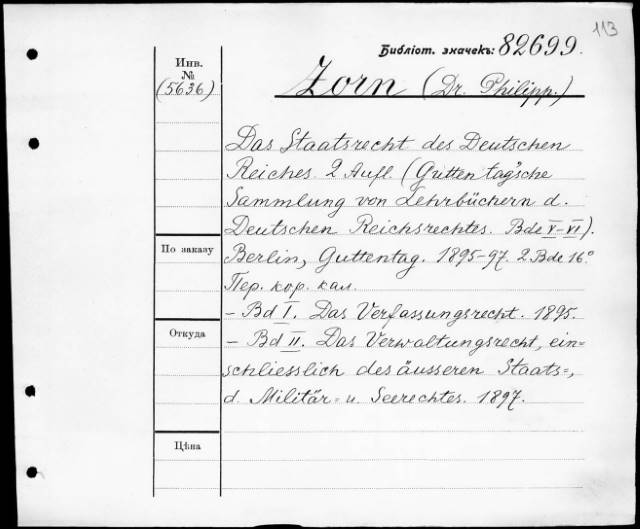 113
Библіот. значекъ: 82699.
Инв.
№
(5636)
Zorn (Dr. Philipp.)
Das Staatsrecht des Deutschen
Reiches. 2 Aufl. (Guttentag'sche
Sammlung von Lehrbüchern d.
Deutschen Reichsrechtes. Bde V–VI).
По заказу
Berlin, Guttentag. 1895-97. 2 Bde 16°
Пер. кор. кал.
– Bd I. Das Verfassungsrecht. 1895.
Откуда
– Bd II. Das Verwaltungsrecht, ein=
schliesslich des äusseren Staats=,
d. Militär= u. Seerechtes. 1897.
Цѣна